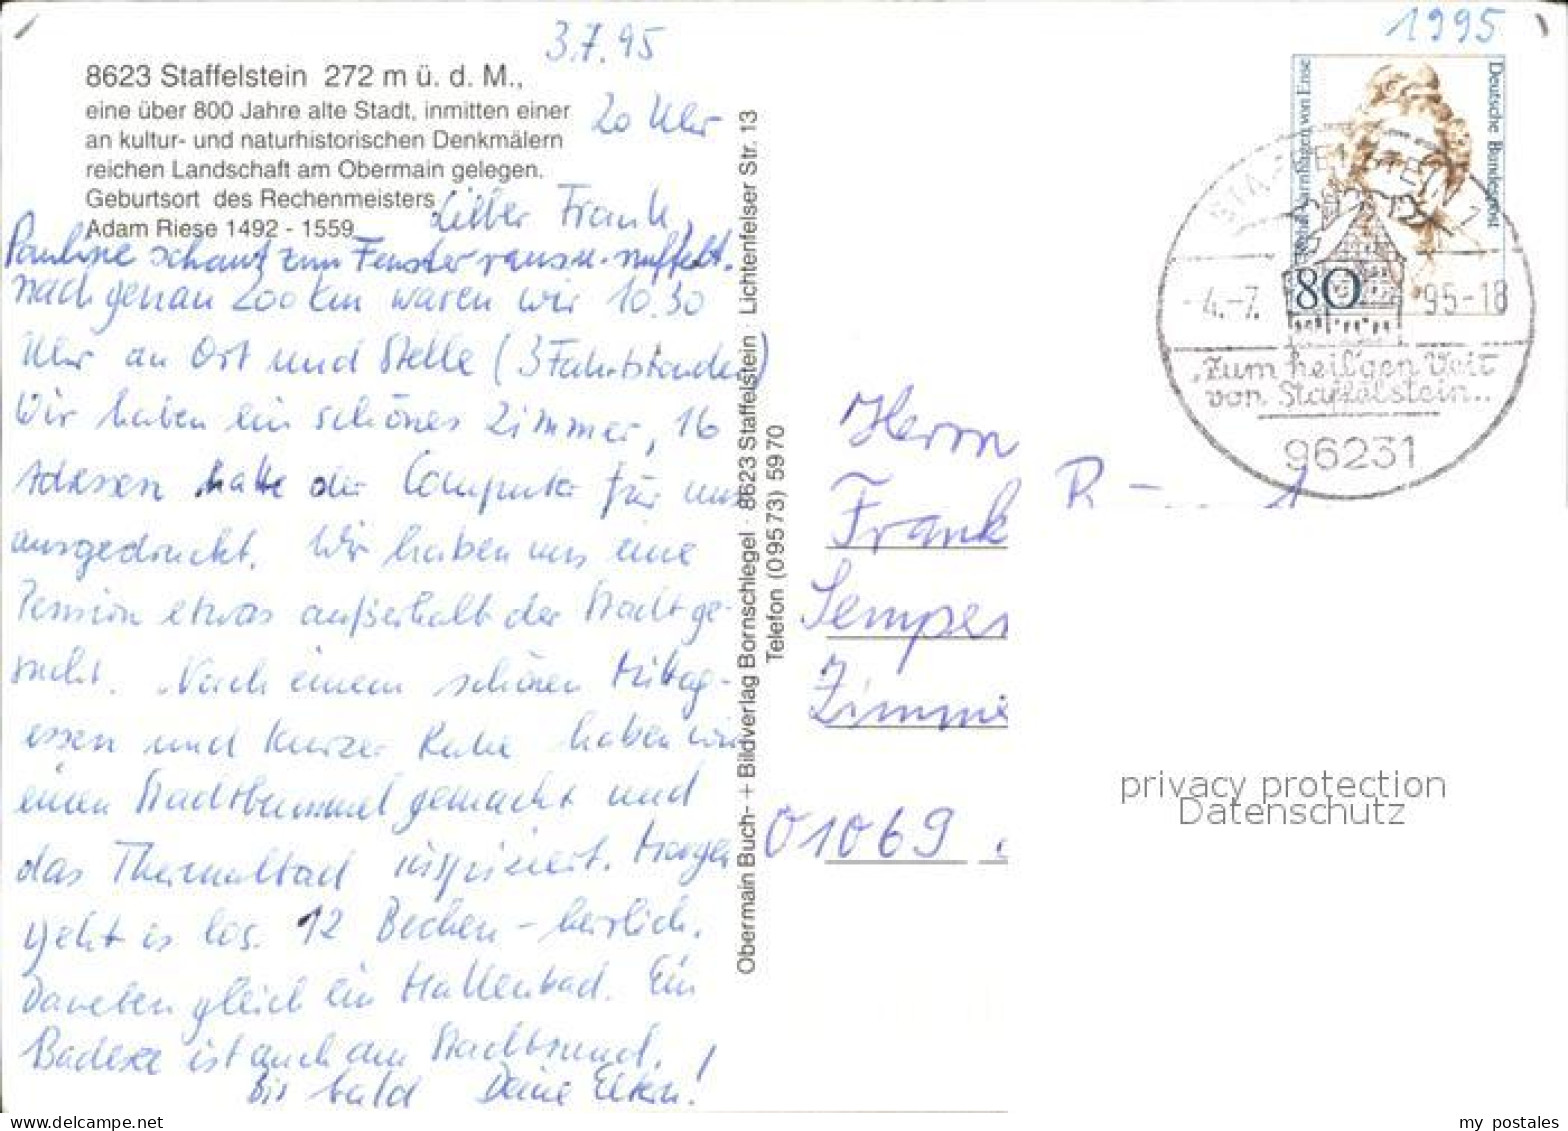 3.7.95
1995
8623 Staffelstein 272 m ü. d. M.,
eine über 800 Jahre alte Stadt, inmitten einer
an kultur- und naturhistorischen Denkmälern
reichen Landschaft am Obermain gelegen.
Geburtsort des Rechenmeisters
Adam Riese 1492 - 1559
20 Uhr
Lieber Frank,
Pauline schaut zum Fenster raus u. muffelt.
nach genau 200 km waren wir 10.30
Uhr an Ort und Stelle (3 Fahrtstunden)
Wir haben ein schönes Zimmer, 16
Adressen hatte der Computer für uns
ausgedruckt. Wir haben uns eine
Pension etwas außerhalb der Stadt ge-
sucht. Nach einem schönen Mittag-
essen und kurzer Ruhe haben wir
einen Stadtbummel gemacht und
das Thermalbad inspiziert. Morgen
geht es los. 12 Becken - herrlich.
Daneben gleich ein Hallenbad. Ein
Badesee ist auch am Stadtrand.
Bis bald Deine Eltern!
Obermain Buch- + Bildverlag Bornschlegel · 8623 Staffelstein · Lichtenfelser Str. 13
Telefon (09573) 5970
Deutsche Bundespost
Rahel Varnhagen von Ense
80
STAFFELSTEIN
-4.-7. 95-18
"Zum heil'gen Veit
von Staffelstein..
96231
Herrn
Frank R
Semper
Zimme
01069
privacy protection
Datenschutz
my_postales